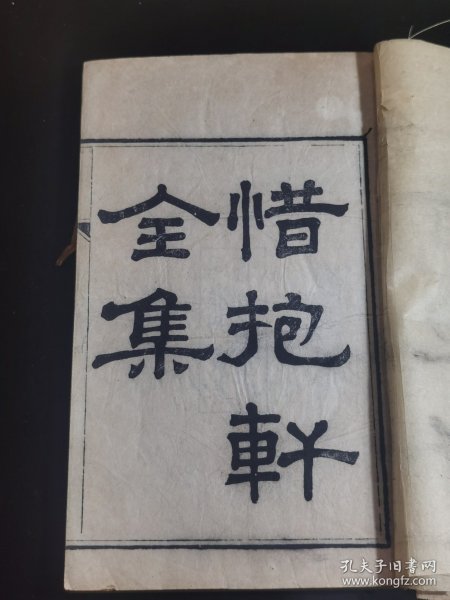 惜抱軒
全集
孔夫子旧书网
www.kongfz.com